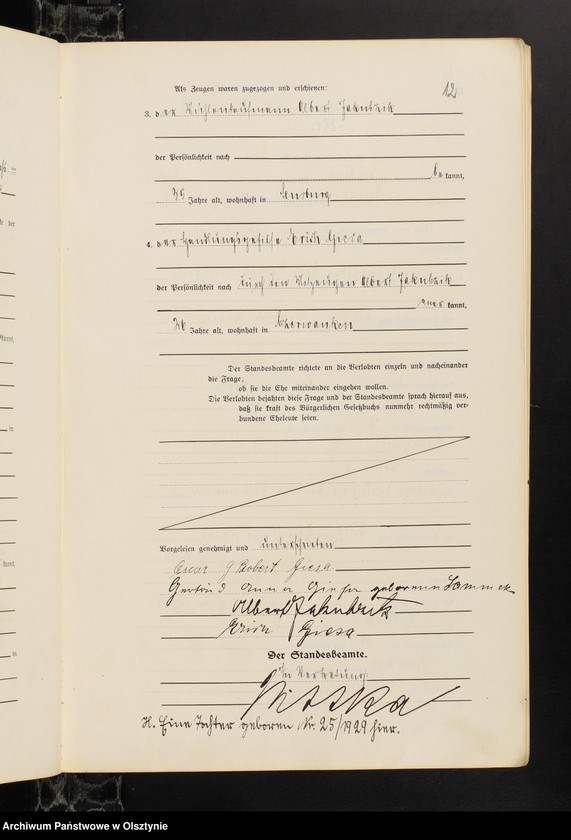 12
Als Zeugen waren zugezogen und erschienen:
3. der Mühlenkaufmann Albert Jakubzik
der Persönlichkeit nach
be kannt,
Jahre alt, wohnhaft in Sensburg
4. der Handlungsgehilfe Erich Giesa
der Persönlichkeit nach durch den Mitzeugen Albert Jakubzik
aner kannt,
Jahre alt, wohnhaft in Czerwanken
Der Standesbeamte richtete an die Verlobten einzeln und nacheinander
die Frage:
ob sie die Ehe miteinander eingehen wollen.
Die Verlobten bejahten diese Frage und der Standesbeamte sprach hierauf aus,
daß sie kraft des Bürgerlichen Gesetzbuchs nunmehr rechtmäßig ver-
bundene Eheleute seien.
Vorgelesen genehmigt und unterschrieben
Oscar Robert Giesa
Gertrud Anna Giesa geborenn
Albert Jakubzik
Erich Giesa
Der Standesbeamte.
In Vertretung:
H. Eine Tochter geboren Nr. 25/1929 hier.
Archiwum Państwowe w Olsztynie